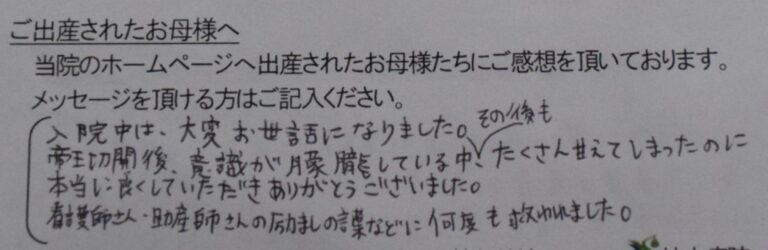 ご出産されたお母様へ
当院のホームページへ出産されたお母様たちにご感想を頂いております。
メッセージを頂ける方はご記入ください。
入院中は、大変お世話になりました。その後も
帝王切開後、意識が朦朧としている中、たくさん甘えてしまったのに
本当に良くしていただきありがとうございました。
看護師さん・助産師さんの励ましの言葉などに何度も救われました。